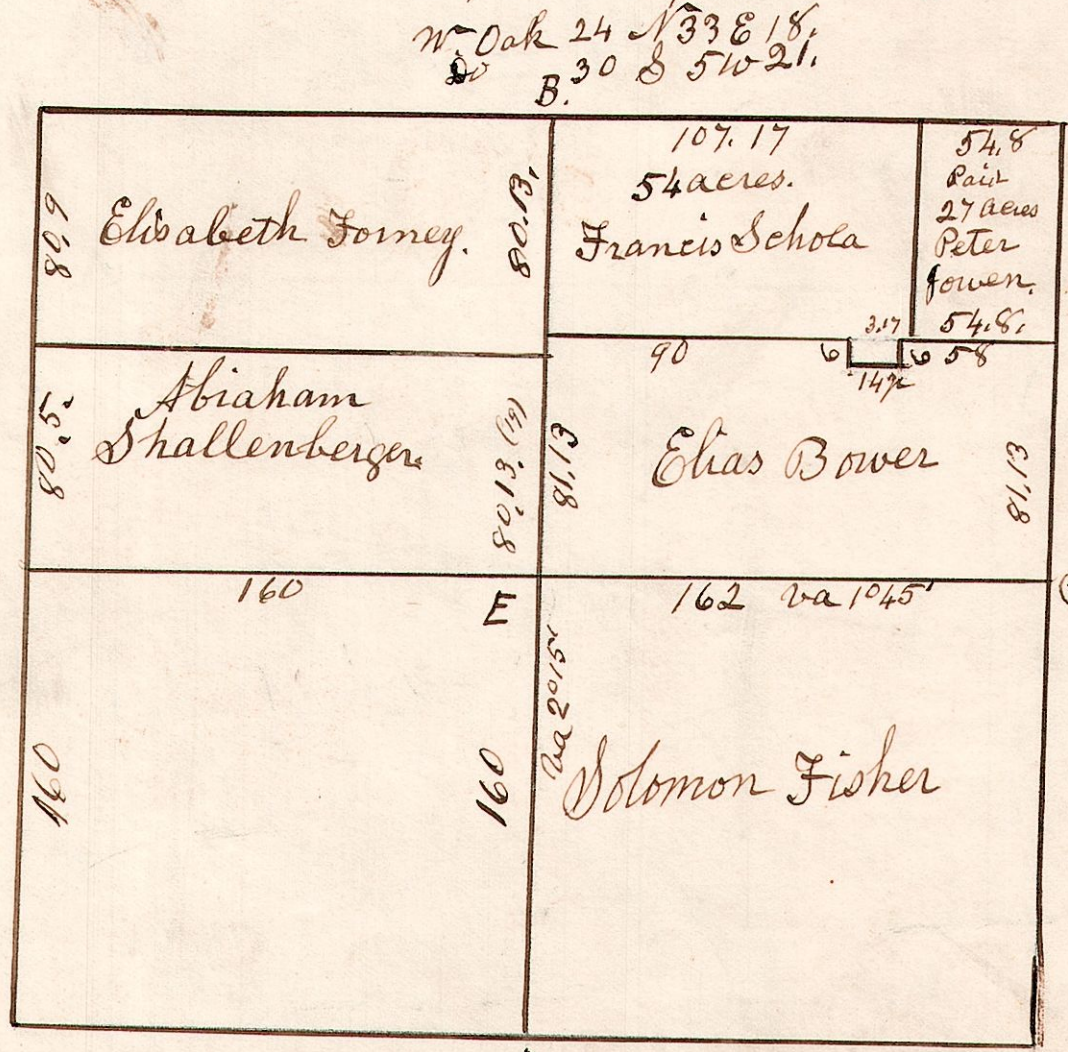 W Oak 24 N33E 18.
Do 30 S 5W 21.
B.
80.9
Elisabeth Forney.
80.13.
107.17
54 acres.
Francis Schola
3.17
54.8
Paid
27 acres
Peter
Jowen.
54.8.
80.5.
Abraham
Shallenberger.
80.13. (19)
90
6
147
6 58
81.13
Elias Bower
81.13
160
E
162 va 1°45'
160
160
va 2°15'
Solomon Fisher